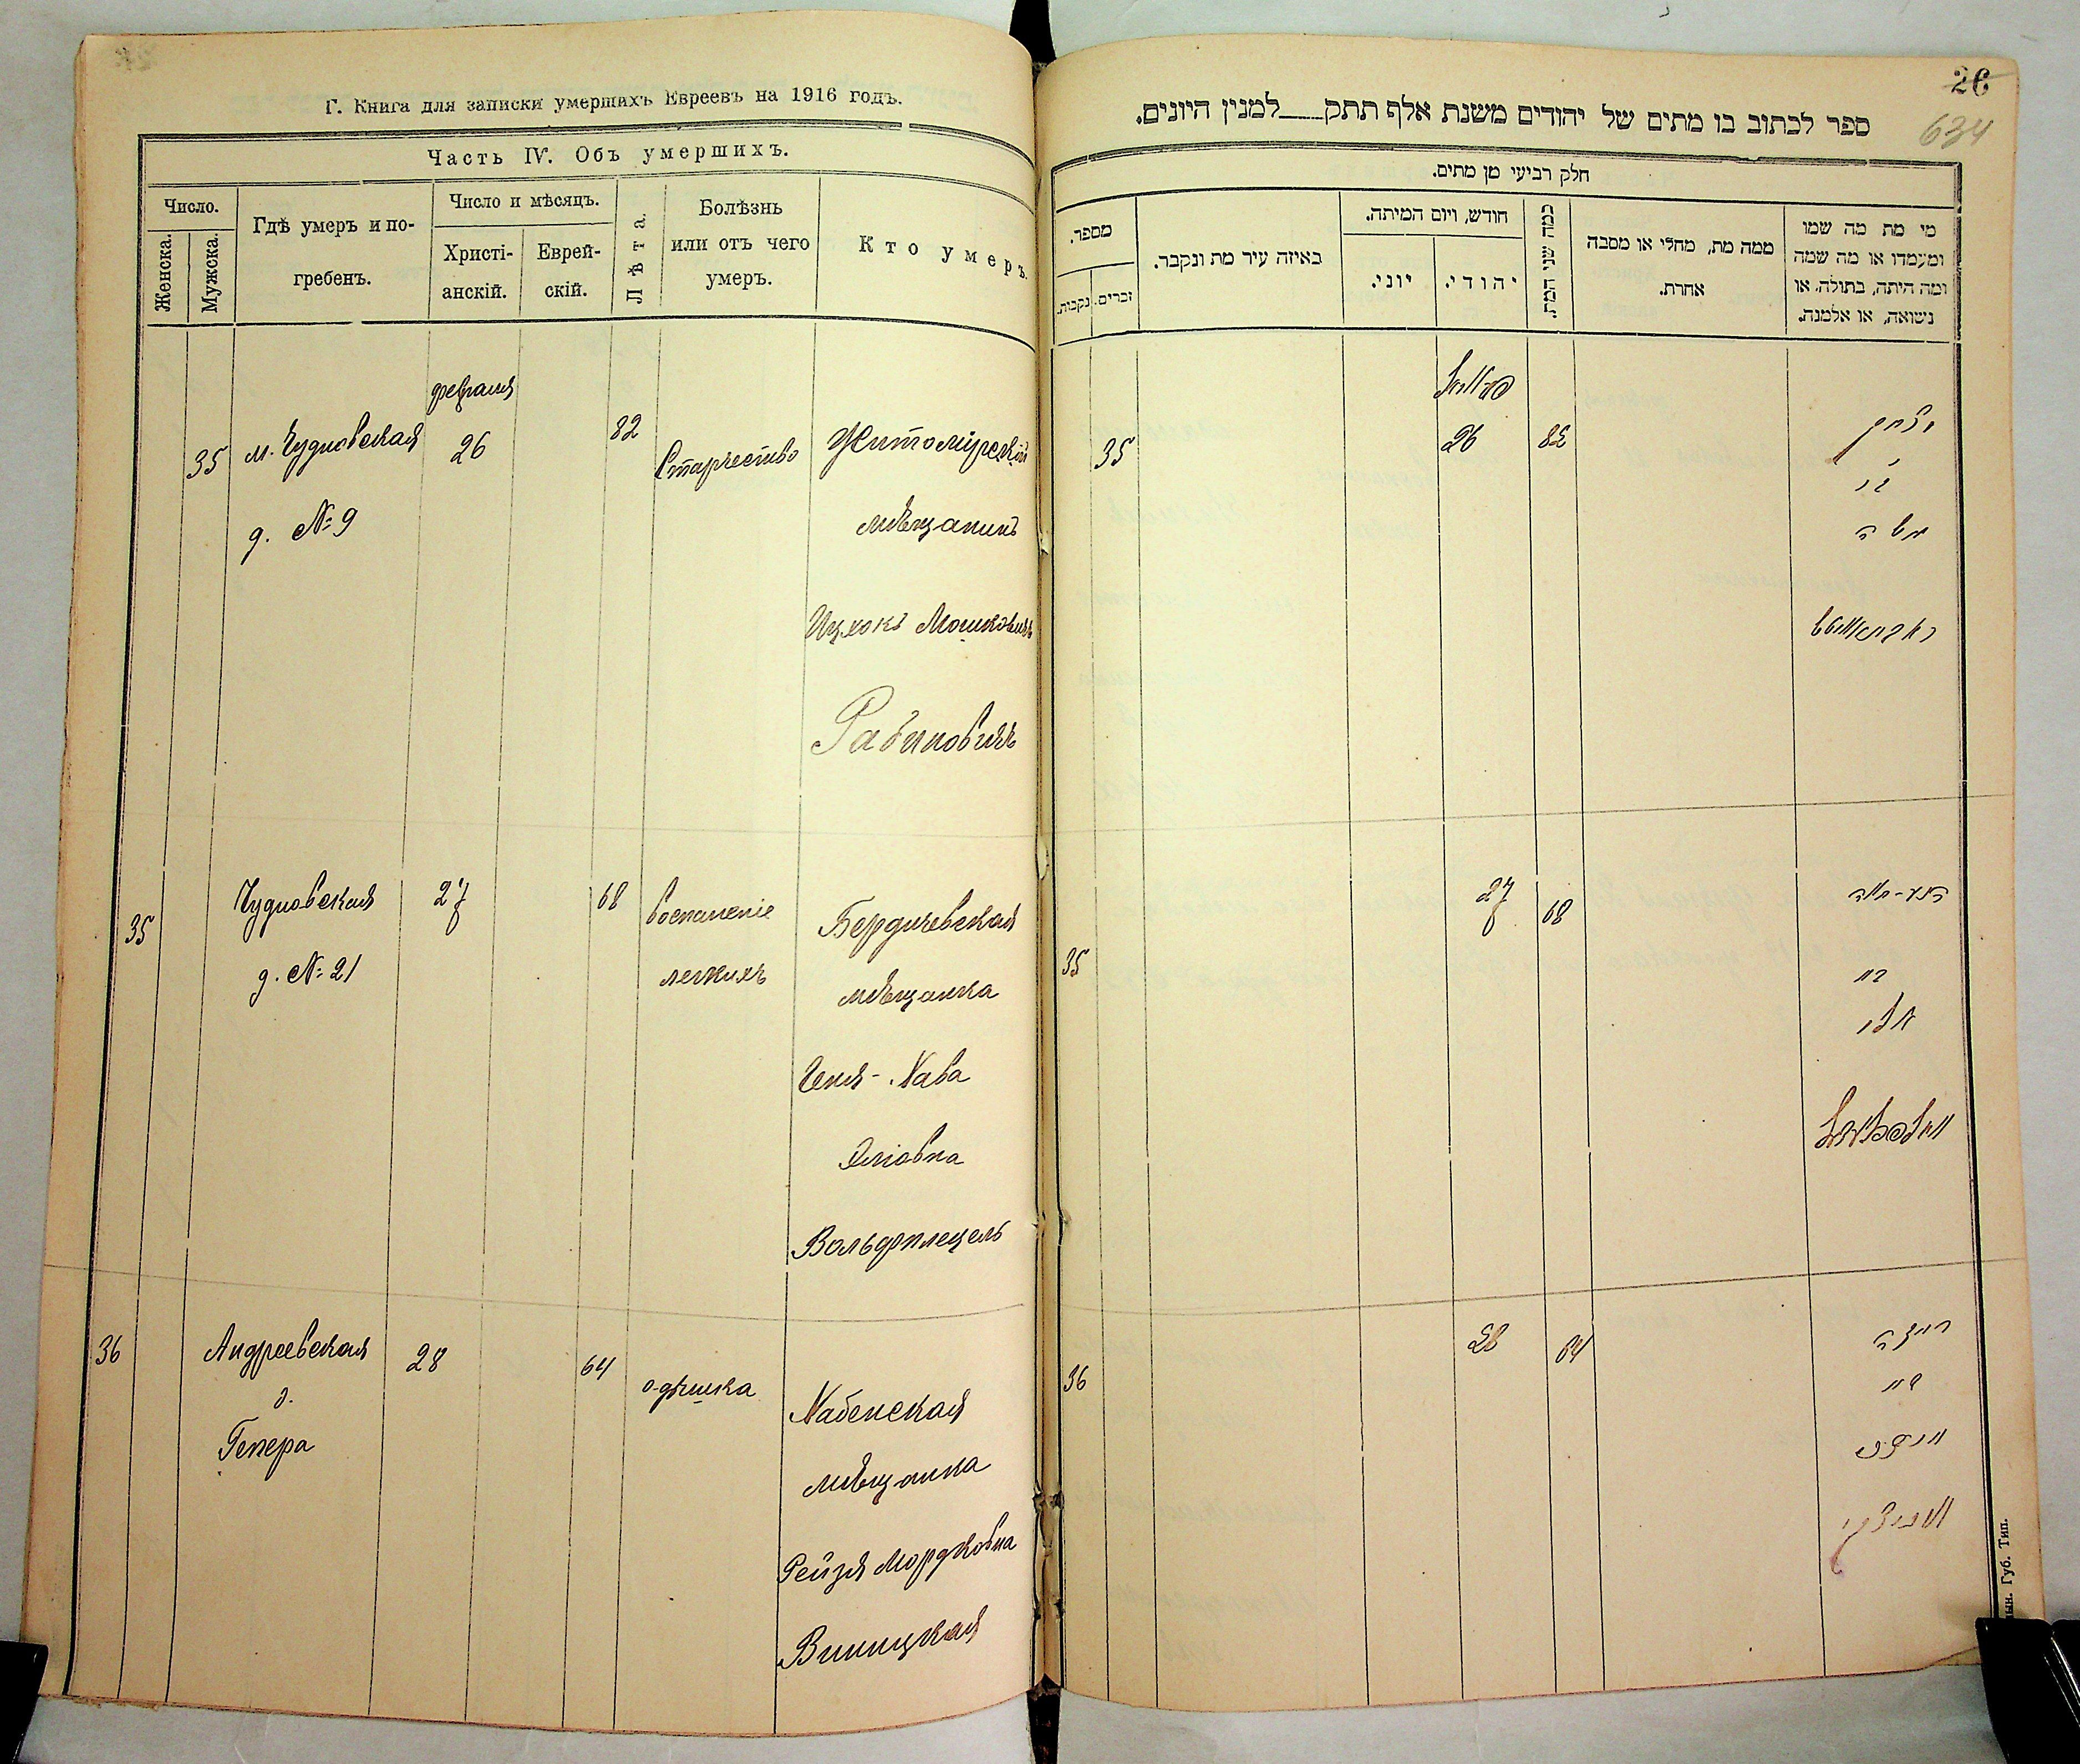 Г. Книга для записки умершихъ Евреевъ на 1916 годъ.
Часть IV. Объ умершихъ.
Число.
Женска.
Мужска.
Гдѣ умеръ и по-
гребенъ.
Число и мѣсяцъ.
Христі-
анскій.
Еврей-
скій.
Лѣта.
Болѣзнь
или отъ чего
умеръ.
Кто умеръ.
февраля
35 м. Чудновская 26 82 Старчество Житомірскій
д. № 9 мѣщанинъ
Ицхокъ Мошковичъ
Рабиновичъ
35 Чудновская 27 68 воспаленіе Бердичевская
д. № 21 легкихъ мѣщанка
Хава
Эліовна
36 Андреевская 28 64 одышка
д.
мѣщанка
Рейзя Мордковна
Виницкая
26
634
ספר לכתוב בו מתים של יהודים משנת אלף תתק למנין היונים.
חלק רביעי מן מתים.
מספר.
נקבות.
זכרים.
באיזה עיר מת ונקבר.
חודש, ויום המיתה.
יוני.
יהודי.
כמה שני המת.
ממה מת, מחלי או מסבה
אחרת.
מי מת מה שמו
ומעמדו או מה שמה
ומה היתה, בתולה או
נשואה, או אלמנה.
35 26 82 יצחק
בן
משה
ראבינאוויטש
35 27 68
בת
אלי
36 28 64 רייזה
בת
וויניצקי
Губ. Тип.